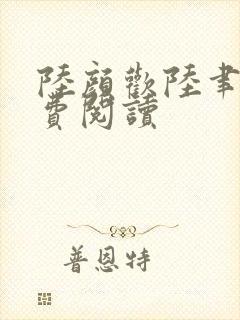 陸顏歡陸聿
費閱讀
普恩特